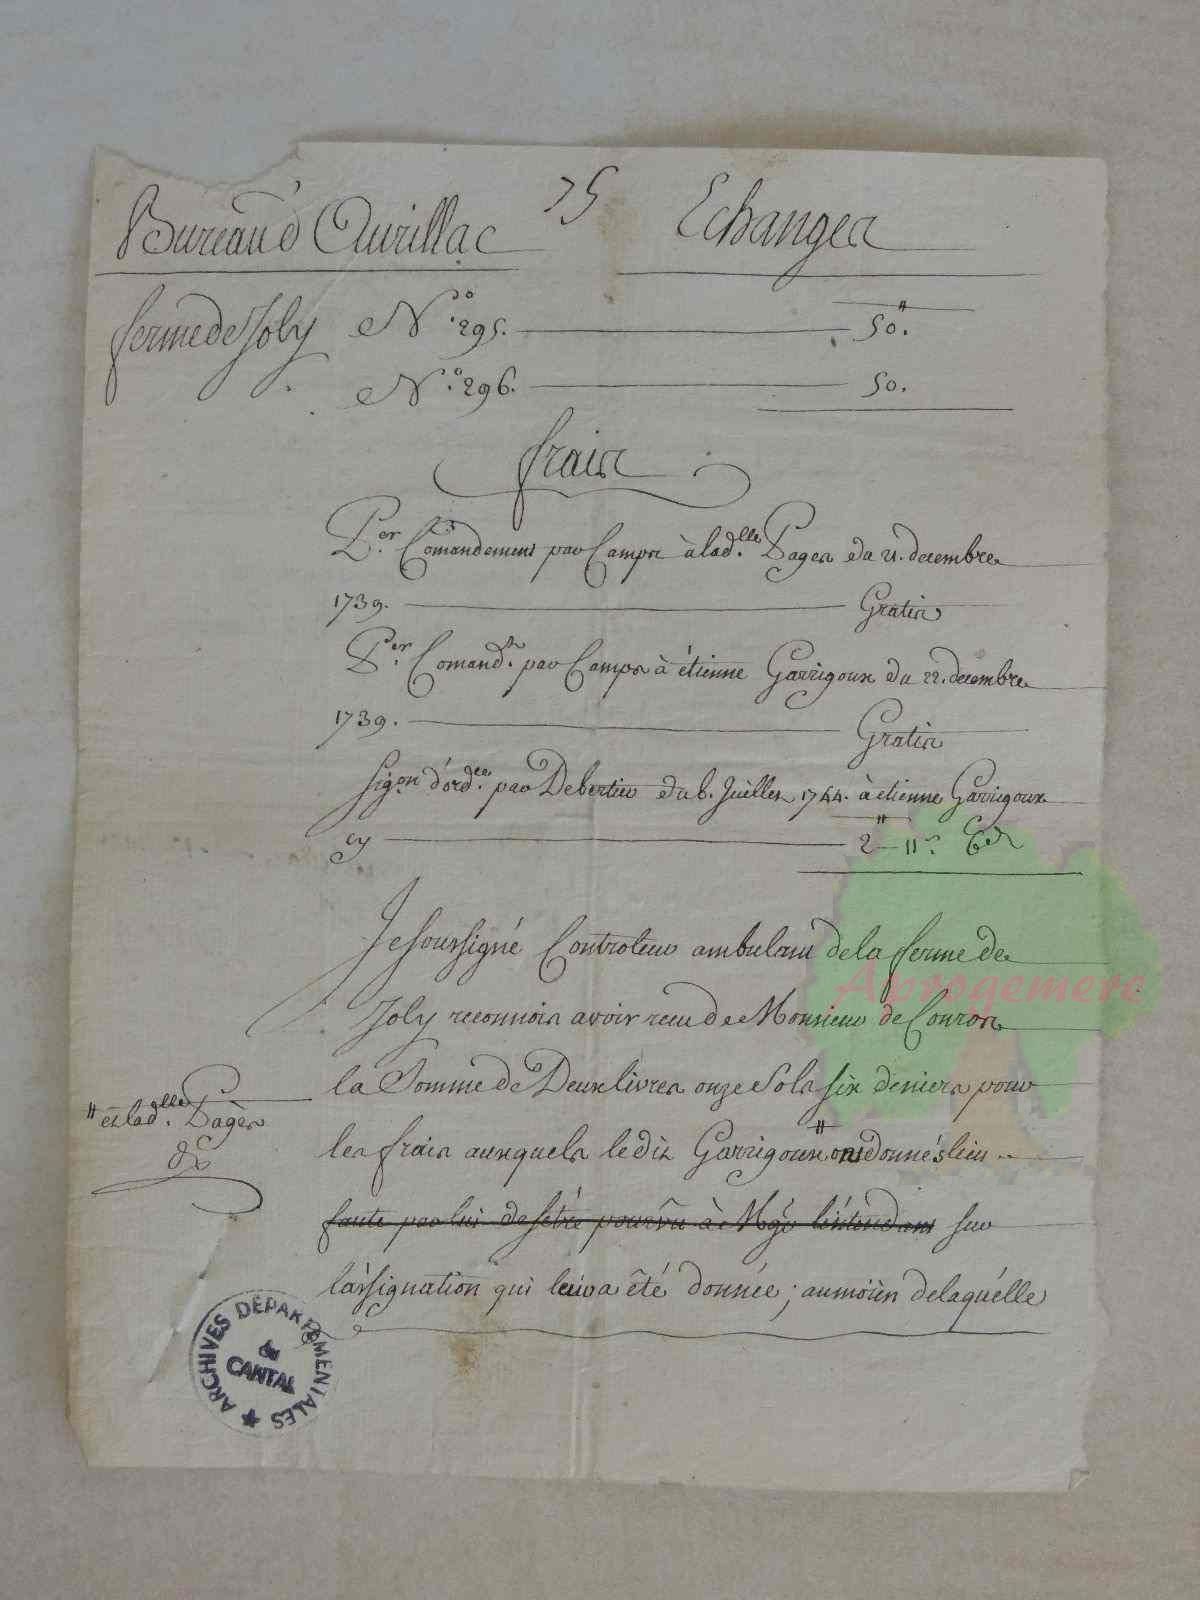 Bureau d'Aurillac 75 Echanges
ferme de Joly N.° 295. 50.
N.° 296. 50.
frais
P.er Comandement par Camps à lad.lle Pages du 21. decembre
1739. Gratis
P.er Comand.t par Camps à étienne Garrigoux du 22. decembre
1739. Gratis
sig.on d'ord.ce par Debertier du 6. Juillet 1744. à etienne Garrigoux
cy 2 11.s 6.d
Je soussigné Controleur ambulant de la ferme de
Joly reconnois avoir receu de Monsieur de Couros
la Somme de Deux livres onze Sols six deniers pour
" et lad.lle Pagès
les frais auxquels le dit Garrigoux " ont donnés lieu
faute par lui de s'être pourvû à M.gr l'intendant sur
l'assignation qui leur a été donnée ; au moïen de laquélle
ARCHIVES DEPARTEMENTALES
du
CANTAL
Aprogemere